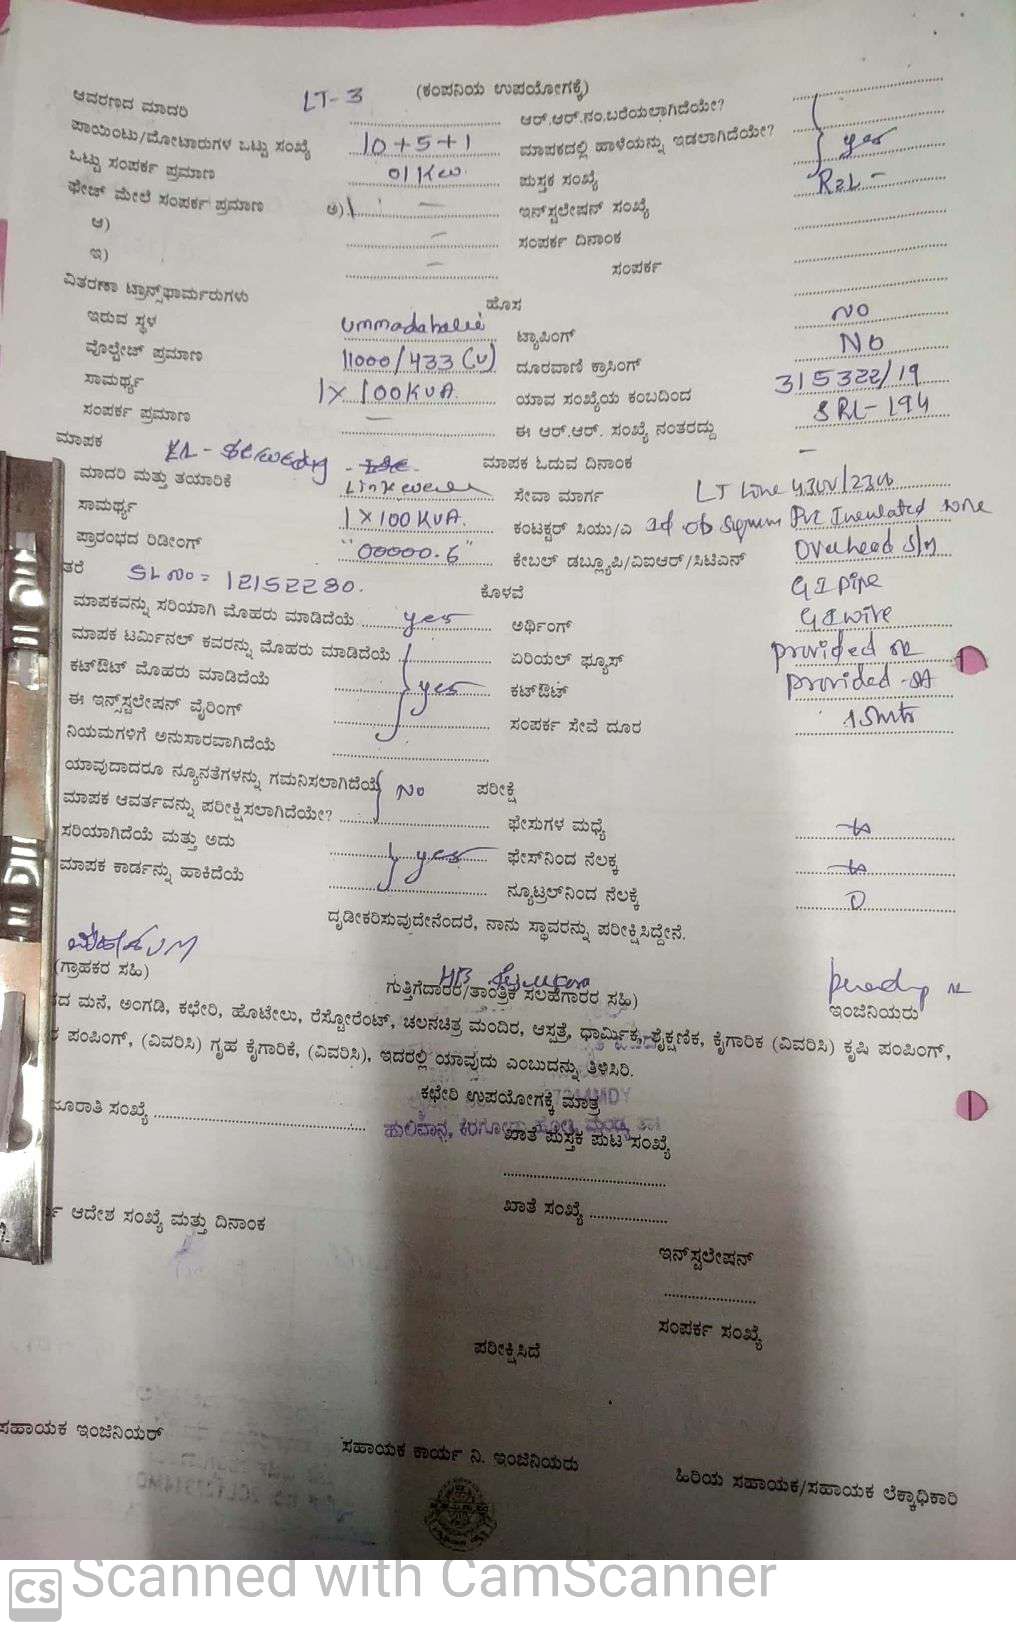 (ಕಂಪನಿಯ ಉಪಯೋಗಕ್ಕೆ)
ಆವರಣದ ಮಾದರಿ LT-3 ಆರ್.ಆರ್.ನಂ.ಬರೆಯಲಾಗಿದೆಯೇ?
ಪಾಯಿಂಟು/ಮೋಟಾರುಗಳ ಒಟ್ಟು ಸಂಖ್ಯೆ 10+5+1 ಮಾಪಕದಲ್ಲಿ ಹಾಳೆಯನ್ನು ಇಡಲಾಗಿದೆಯೇ? yes
ಒಟ್ಟು ಸಂಪರ್ಕ ಪ್ರಮಾಣ 01 Kw. ಪುಸ್ತಕ ಸಂಖ್ಯೆ
ಫೇಜ್ ಮೇಲೆ ಸಂಪರ್ಕ ಪ್ರಮಾಣ ಅ) - ಇನ್‌ಸ್ಟಲೇಷನ್ ಸಂಖ್ಯೆ
ಆ) - ಸಂಪರ್ಕ ದಿನಾಂಕ
ಇ) - ಸಂಪರ್ಕ
ವಿತರಣಾ ಟ್ರಾನ್ಸ್‌ಫಾರ್ಮರುಗಳು ಹೊಸ
ಇರುವ ಸ್ಥಳ ಟ್ಯಾಪಿಂಗ್ NO
ವೋಲ್ಟೇಜ್ ಪ್ರಮಾಣ 11000/433 (V) ದೂರವಾಣಿ ಕ್ರಾಸಿಂಗ್ NO
ಸಾಮರ್ಥ್ಯ 1 X 100 KVA. ಯಾವ ಸಂಖ್ಯೆಯ ಕಂಬದಿಂದ 315322/19
ಸಂಪರ್ಕ ಪ್ರಮಾಣ - ಈ ಆರ್.ಆರ್. ಸಂಖ್ಯೆ ನಂತರದ್ದು SRL-194
ಮಾಪಕ ಮಾಪಕ ಓದುವ ದಿನಾಂಕ -
ಮಾದರಿ ಮತ್ತು ತಯಾರಿಕೆ ಸೇವಾ ಮಾರ್ಗ LT Line
ಸಾಮರ್ಥ್ಯ 1 X 100 KVA. ಕಂಟಕ್ಟರ್ ಸಿಯು/ಎ PVC Insulated wire
ಪ್ರಾರಂಭದ ರಿಡೀಂಗ್ "00000.6" ಕೇಬಲ್ ಡಬ್ಲ್ಯೂಪಿ/ವಿಐಆರ್/ಸಿಟಿಎಸ್ Overhead S/M
ತರೆ SL NO = 12152280. ಕೊಳವೆ GI pipe
ಮಾಪಕವನ್ನು ಸರಿಯಾಗಿ ಮೊಹರು ಮಾಡಿದೆಯೆ yes ಅರ್ಥಿಂಗ್ GI wire
ಮಾಪಕ ಟರ್ಮಿನಲ್ ಕವರನ್ನು ಮೊಹರು ಮಾಡಿದೆಯೆ ಏರಿಯಲ್ ಫ್ಯೂಸ್ provided
ಕಟ್‌ಔಟ್ ಮೊಹರು ಮಾಡಿದೆಯೆ yes ಕಟ್‌ಔಟ್ provided
ಈ ಇನ್ಸ್‌ಸ್ಟಲೇಷನ್ ವೈರಿಂಗ್ ಸಂಪರ್ಕ ಸೇವೆ ದೂರ 15mts
ನಿಯಮಗಳಿಗೆ ಅನುಸಾರವಾಗಿದೆಯೆ
ಯಾವುದಾದರೂ ನ್ಯೂನತೆಗಳನ್ನು ಗಮನಿಸಲಾಗಿದೆಯೆ NO ಪರೀಕ್ಷೆ
ಮಾಪಕ ಆವರ್ತವನ್ನು ಪರೀಕ್ಷಿಸಲಾಗಿದೆಯೇ? ಫೇಸುಗಳ ಮಧ್ಯೆ
ಸರಿಯಾಗಿದೆಯೆ ಮತ್ತು ಅದು yes ಫೇಸ್‌ನಿಂದ ನೆಲಕ್ಕೆ
ಮಾಪಕ ಕಾರ್ಡನ್ನು ಹಾಕಿದೆಯೆ ನ್ಯೂಟ್ರಲ್‌ನಿಂದ ನೆಲಕ್ಕೆ 0
ದೃಢೀಕರಿಸುವುದೇನೆಂದರೆ, ನಾನು ಸ್ಥಾವರನ್ನು ಪರೀಕ್ಷಿಸಿದ್ದೇನೆ.
(ಗ್ರಾಹಕರ ಸಹಿ) ಗುತ್ತಿಗೆದಾರರ/ತಾಂತ್ರಿಕ ಸಲಹೆಗಾರರ ಸಹಿ) ಇಂಜಿನಿಯರು
ದ ಮನೆ, ಅಂಗಡಿ, ಕಛೇರಿ, ಹೊಟೇಲು, ರೆಸ್ಟೋರೆಂಟ್, ಚಲನಚಿತ್ರ ಮಂದಿರ, ಆಸ್ಪತ್ರೆ, ಧಾರ್ಮಿಕ, ಶೈಕ್ಷಣಿಕ, ಕೈಗಾರಿಕ (ವಿವರಿಸಿ) ಕೃಷಿ ಪಂಪಿಂಗ್,
ಪಂಪಿಂಗ್, (ವಿವರಿಸಿ) ಗೃಹ ಕೈಗಾರಿಕೆ, (ವಿವರಿಸಿ), ಇದರಲ್ಲಿ ಯಾವುದು ಎಂಬುದನ್ನು ತಿಳಿಸಿರಿ.
ಕಛೇರಿ ಉಪಯೋಗಕ್ಕೆ ಮಾತ್ರ
ಜೂರಾತಿ ಸಂಖ್ಯೆ ಖಾತೆ ಪುಸ್ತಕ ಪುಟ ಸಂಖ್ಯೆ
ಆದೇಶ ಸಂಖ್ಯೆ ಮತ್ತು ದಿನಾಂಕ ಖಾತೆ ಸಂಖ್ಯೆ
ಇನ್‌ಸ್ಟಲೇಷನ್
ಸಂಪರ್ಕ ಸಂಖ್ಯೆ
ಪರೀಕ್ಷಿಸಿದೆ
ಸಹಾಯಕ ಇಂಜಿನಿಯರ್ ಸಹಾಯಕ ಕಾರ್ಯ ನಿ. ಇಂಜಿನಿಯರು ಹಿರಿಯ ಸಹಾಯಕ/ಸಹಾಯಕ ಲೆಕ್ಕಾಧಿಕಾರಿ
CS Scanned with CamScanner